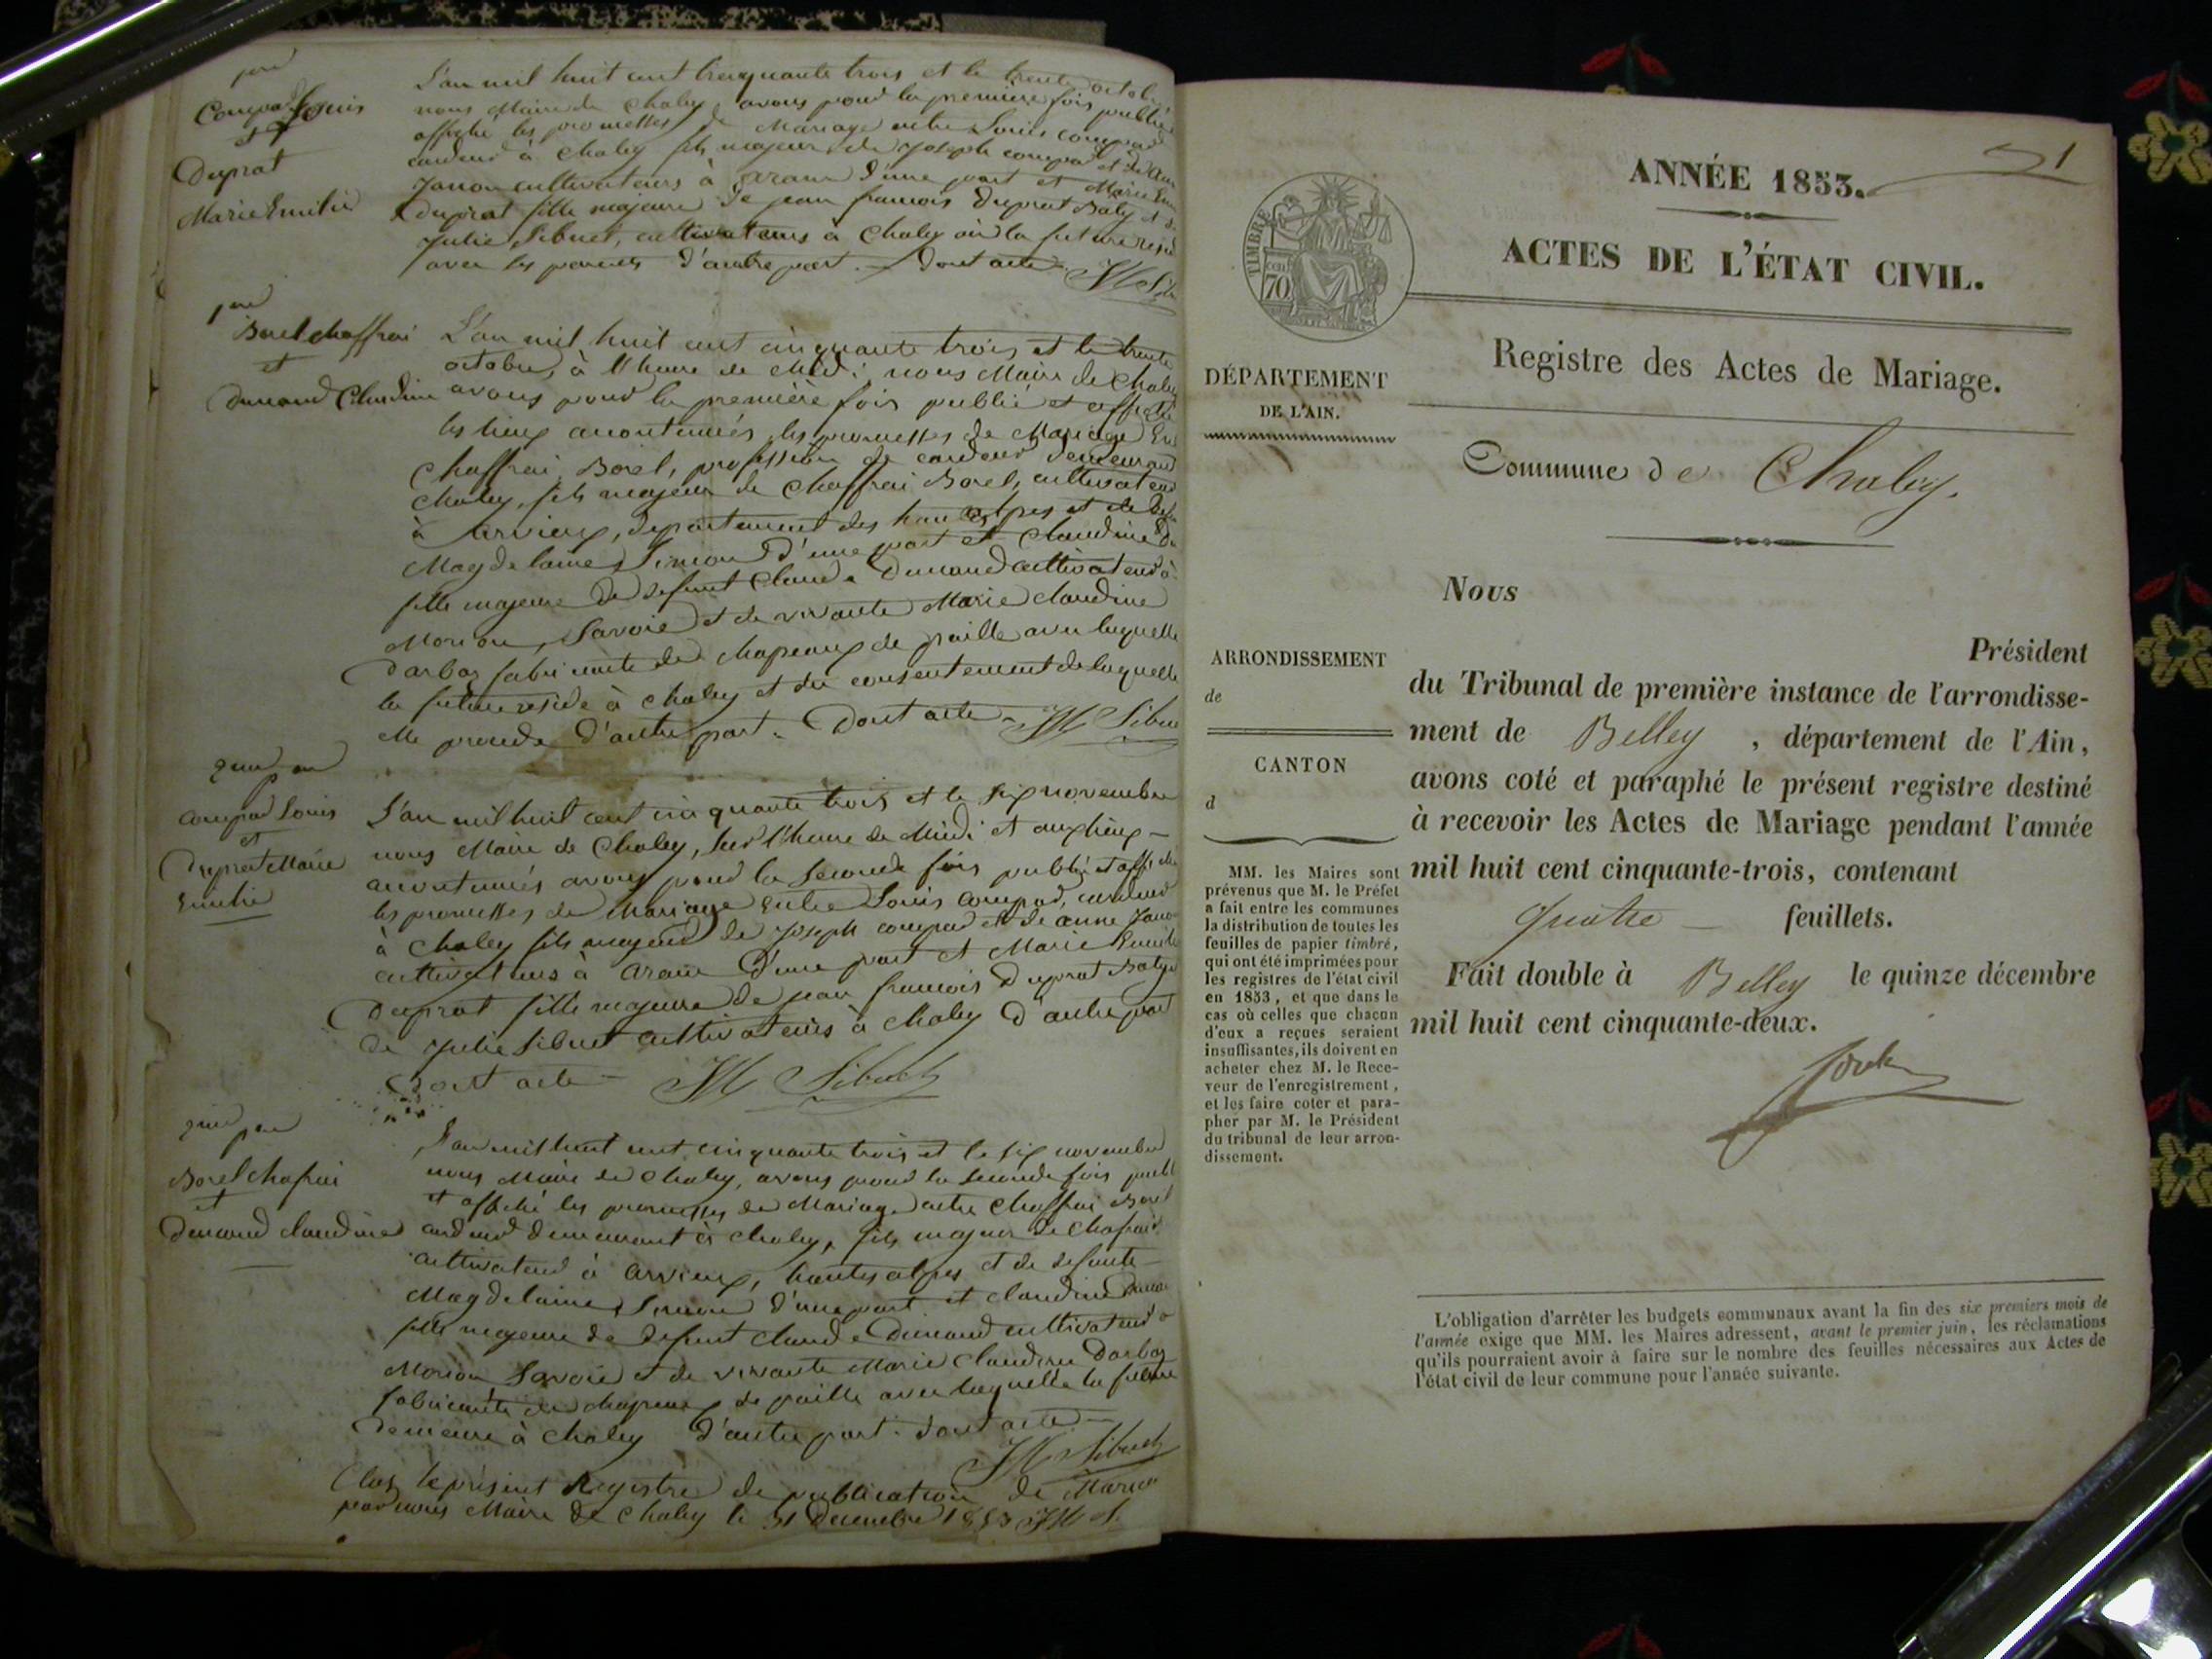 Compoad Louis
et
Duprat
Marie Emilie
L'an mil huit cent cinquante trois et le trente octobre
nous Maire de Chaley, avons pour la première fois publié
affiché les promesses de Mariage entre Louis compoad
cardeur à Chaley fils majeur de Joseph compoad et de
Janon cultivateurs à aranc d'une part et Marie
duprat fille majeure de jean francois Duprat Baly et
Julie Sibuet, cultivateurs à Chaley où la future
avec ses parents d'autre part. Dont acte
Borel chaffrai
et
Dunand Claudine
L'an mil huit cent cinquante trois et le trente
octobre, à l'heure de Midi nous Maire de Chaley
avons pour la première fois publié et affiché
les lieux accoutumés les promesses de Mariage
Chaffrai Borel, profession de cardeur demeurant
Chaley, fils majeur de Chaffrai Borel, cultivateur
à Arvieux, departement des hautes alpes et de
Magdelaine Simon d'une part et Claudine
fille majeure de defunt Claude Dunand cultivateur à
Morion, Savoie et de vivante Marie claudine
Darbaz fabricante de chapeaux de paille avec laquelle
la future reside à Chaley et du consentement de laquelle
elle procede d'autre part. Dont acte JM Sibuet
Compoad Louis
et
Duprat Marie
Emilie
L'an mil huit cent cinquante trois et le six novembre
nous Maire de Chaley, sur l'heure de Midi et aux lieux
accoutumés avons pour la seconde fois publié et affiché
les promesses de Mariage entre Louis compoad, cardeur
à Chaley fils majeur de Joseph compoad et de anne Janon
cultivateurs à aranc d'une part et Marie Emilie
Duprat fille majeure de jean francois Duprat Baly et
de Julie Sibuet cultivateurs à Chaley d'autre part
Dont acte JM Sibuet
Borel chafrai
et
Dunand claudine
L'an mil huit cent cinquante trois et le six novembre
nous Maire de Chaley, avons pour la seconde fois publ
et affiché les promesses de Mariage entre Chaffrai Borel
cardeur demeurant à Chaley, fils majeur de Chafrai
cultivateur à arvieux, hautes alpes et de defunte
Magdelaine Simon d'une part et claudine Dunan
fille majeure de defunt Claude Dunand cultivateur à
Morion Savoie et de vivante Marie Claudine Darbaz
fabricante de chapeaux de paille avec laquelle la future
demeure à Chaley d'autre part. Dont acte
JM Sibuet
Clos le présent Registre de publication de Mariage
par nous Maire de Chaley le 31 Decembre 1853 JM S.
1
ANNÉE 1853.
ACTES DE L'ÉTAT CIVIL.
TIMBRE
70
DÉPARTEMENT
DE L'AIN.
Registre des Actes de Mariage.
Commune de Chaley.
Nous
Président
ARRONDISSEMENT
de
CANTON
d
du Tribunal de première instance de l'arrondisse-
ment de Belley, département de l'Ain,
avons coté et paraphé le présent registre destiné
à recevoir les Actes de Mariage pendant l'année
mil huit cent cinquante-trois, contenant
quatre feuillets.
Fait double à Belley le quinze décembre
mil huit cent cinquante-deux.
MM. les Maires sont
prévenus que M. le Préfet
a fait entre les communes
la distribution de toutes les
feuilles de papier timbré,
qui ont été imprimées pour
les registres de l'état civil
en 1853, et que dans le
cas où celles que chacun
d'eux a reçues seraient
insuffisantes, ils doivent en
acheter chez M. le Rece-
veur de l'enregistrement,
et les faire coter et para-
pher par M. le Président
du tribunal de leur arron-
dissement.
L'obligation d'arrêter les budgets communaux avant la fin des six premiers mois de
l'année exige que MM. les Maires adressent, avant le premier juin, les réclamations
qu'ils pourraient avoir à faire sur le nombre des feuilles nécessaires aux Actes de
l'état civil de leur commune pour l'année suivante.